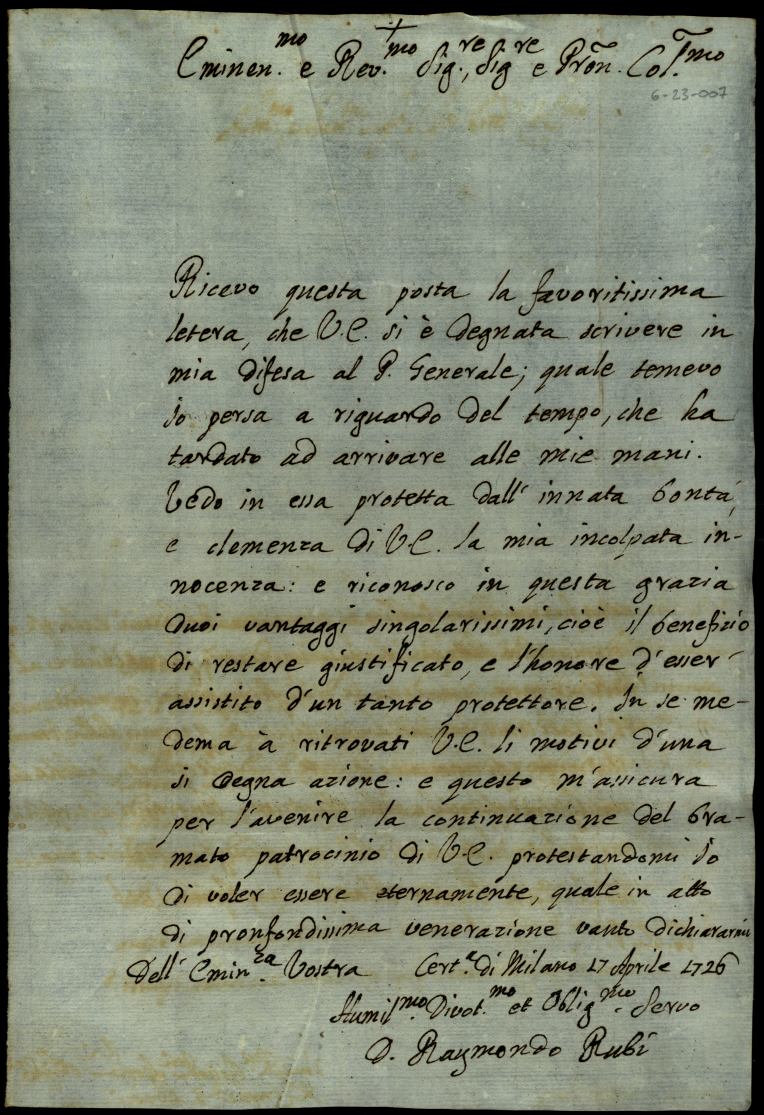 +
Eminen.mo e Rev.mo Sig.re, Sig.re e Pron. Col.mo
6-23-007
Ricevo questa posta la favoritissima
letera, che V.E. si è degnata scrivere in
mia difesa al P. Generale; quale temevo
Io persa a riguardo del tempo, che ha
tardato ad arrivare alle mie mani.
Vedo in essa protetta dall' innata bontá,
e clemenza di V.E. la mia incolpata in-
nocenza: e riconosco in questa grazia
duoi vantaggi singolarissimi, cioè il benefizio
di restare giustificato, e l'honore d'esser
assistito d'un tanto protettore. In se me-
dema à ritrovati V.E. li motivi d'una
si degna azione: e questo m'assicura
per l'avenire la continuazione del bra-
mato patrocinio di V.E. protestandomi Io
di voler essere eternamente, quale in atto
di pronfondissima venerazione vanto dichiararmi
Dell' Emin.za Vostra Cert.a di Milano 17 Aprile 1726
Humil.mo Divot.mo et Oblig.mo Servo
D. Raymondo Rubi